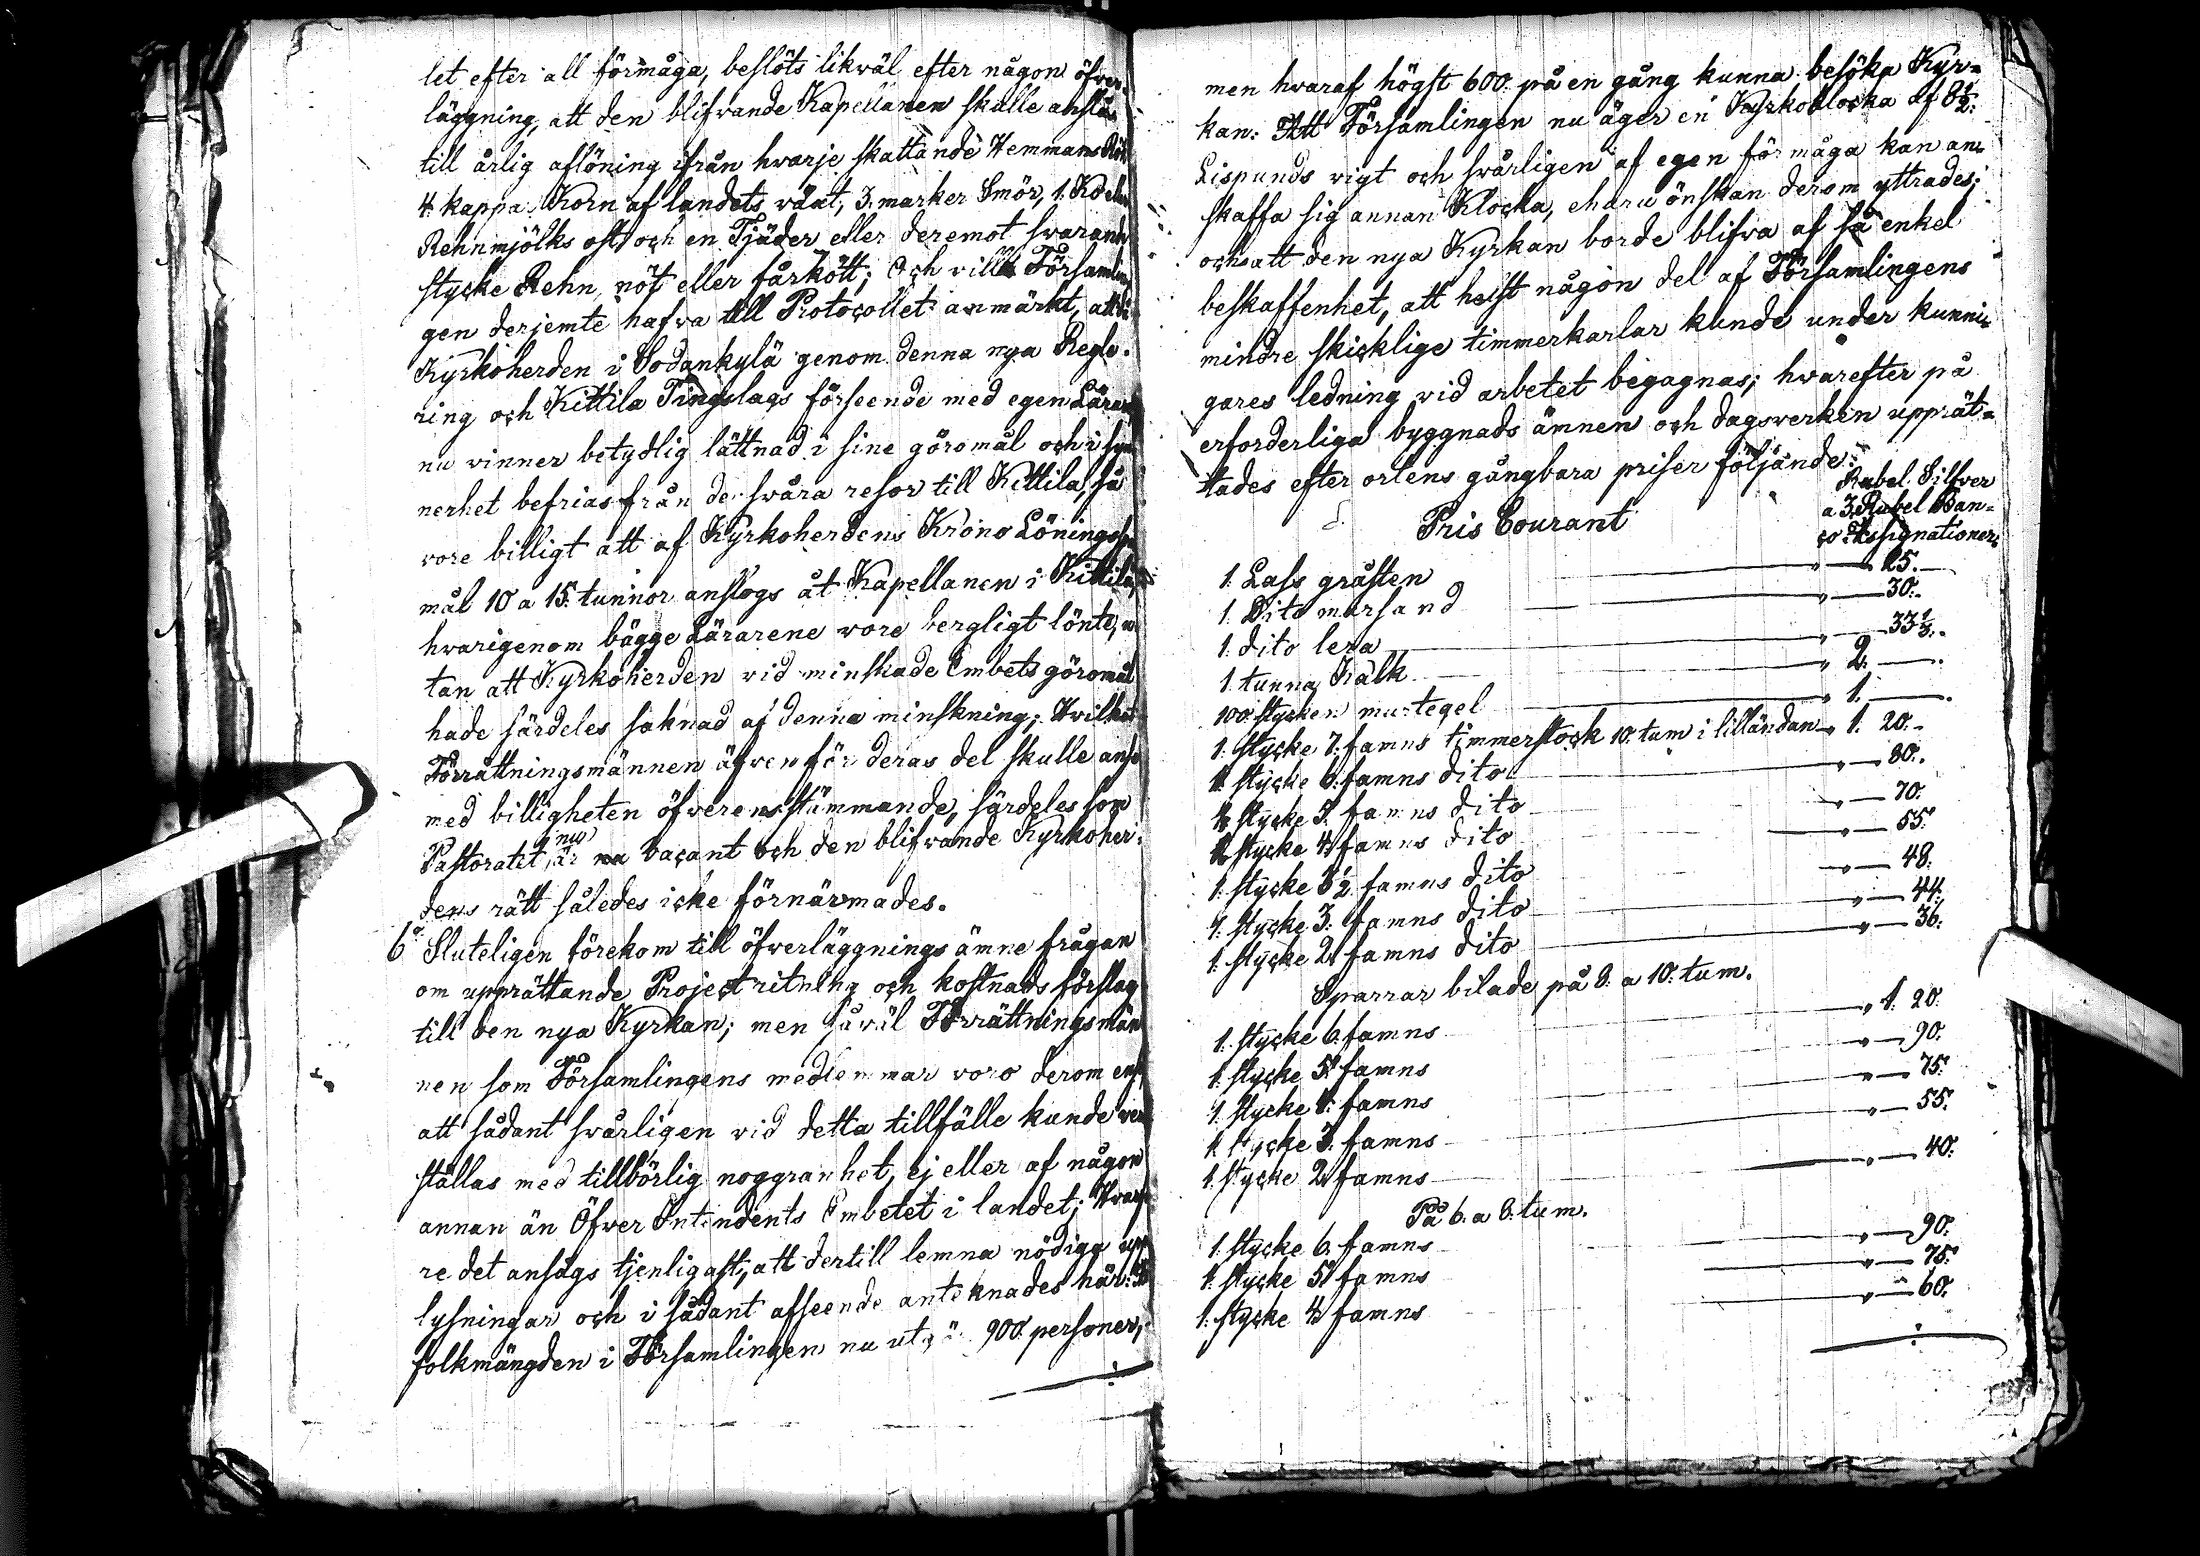 let efter all förmåga, beslöts likväl efter någon öfver-
läggning, att den blifvande Kapellanen skulle anslås
till årlig aflöning ifrån hvarje skattande Hemmans Rök
4. kappa Korn af landets växt, 3. marker Smör, 1.
Rehnmjölks ost och en Tjäder eller deremot svarande
stycke Rehn, nöt eller fårkött; Och ville Församlin
gen derjemte hafva till Protocollet anmärkt, att
Kyrkoherden i Sodankylä genom denna nya Regle-
ring och Kittila Tingslags förseende med egen Lärare
nu vinner betydlig lättnad i sine göromål och i syn
nerhet befrias från de svåra resor till Kittila, så
vore billigt att af Kyrkoherdens Krono Lönings
mål 10 a 15. tunnor anslogs åt Kapellanen i Kittilä,
hvarigenom bägge Lärarene vore bergligt lönte, u
tan att Kyrkoherden vid minskade Embets göromål
hade särdeles saknad af denna minskning; Hvilket
Förrättningsmännen äfven för deras del skulle anse
med billigheten öfverensstämmande, särdeles som
Pastoratet nu är vacant och den blifvande Kyrkoher-
dens rätt således icke förnärmades.
6° Sluteligen förekom till öfverläggnings ämne frågan
om upprättande Project ritning och kostnads förslag
till den nya Kyrkan; men såväl Förrättningsmän
nen som Församlingens medlemmar voro derom ense,
att sådant svårligen vid detta tillfälle kunde verk
ställas med tillbörlig noggranhet, ej eller af någon
annan än Öfver Intendents Embetet i landet; Hvarfö
re det ansågs tjenligast, att dertill lemna nödiga upp
lysningar och i sådant afseende antecknades när:
folkmängden i Församlingen nu utgör 900. personer,
men hvaraf högst 600. på en gång kunna besöka Kyr-
kan. Att Församlingen nu äger en Kyrkoklocka af 8½.
Lispunds vigt och svårligen af egen förmåga kan an-
skaffa sig annan Klocka, ehuru önskan derom yttrades;
och att den nya Kyrkan borde blifva af så enkel
beskaffenhet, att helst någon del af Församlingens
mindre skicklige timmerkarlar kunde under kunni-
gares ledning vid arbetet begagnas; hvarefter på
erforderliga byggnads ämnen och dagsverken upprät-
tades efter ortens gångbara priser följande:
Rubel Silfver
a 3. Rubel Ban-
Pris Courant
co Assignationer.
1. Lass gråsten " — 25. —
1. Dito mursand " — 30. -
1. dito lera " — 33⅓.
1. tunna Kalk " 2. —
100. stycken murtegel " 1. —
1. stycke 7. famns timmerstock 10. tum i lilländan " 1. 20. -
1. stycke 6. famns dito " — 80.
1. stycke 5. famns dito " — 70.
1. stycke 4. famns dito " — 55.
1. stycke 3½ famns dito " — 48.
1. stycke 3. famns dito " — 44.
1. stycke 2. famns dito " — 36.
Sparrar bilade på 8. a 10. tum.
1. stycke 6. famns " 1. 20.
1. stycke 5. famns " — 90.
1. stycke 4. famns " — 75.
1. stycke 3. famns " — 55.
1. stycke 2. famns " — 40.
På 6. a 8. tum.
1. stycke 6. famns " — 90.
1. stycke 5. famns " — 75.
1. stycke 4. famns " — 60.